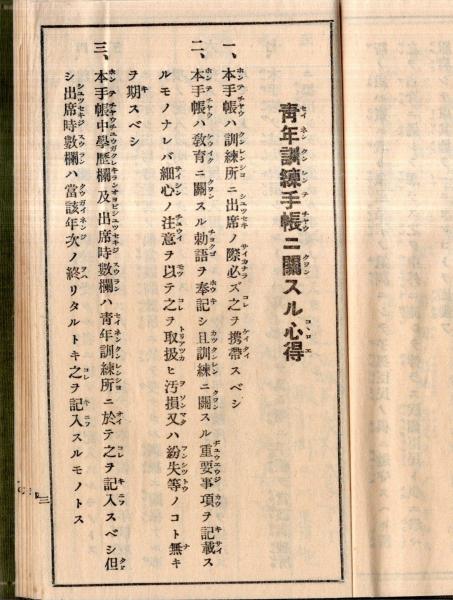 青年訓練手帳ニ關スル心得
一、本手帳ハ訓練所ニ出席ノ際必ズ之ヲ携帶スベシ
二、本手帳ハ敎育ニ關スル勅語ヲ奉記シ且訓練ニ關スル重要事項ヲ記載ス
ルモノナレバ細心ノ注意ヲ以テ之ヲ取扱ヒ汚損又ハ紛失等ノコト無キ
ヲ期スベシ
三、本手帳中學歷欄及出席時數欄ハ靑年訓練所ニ於テ之ヲ記入スベシ但
シ出席時數欄ハ當該年次ノ終リタルトキ之ヲ記入スルモノトス